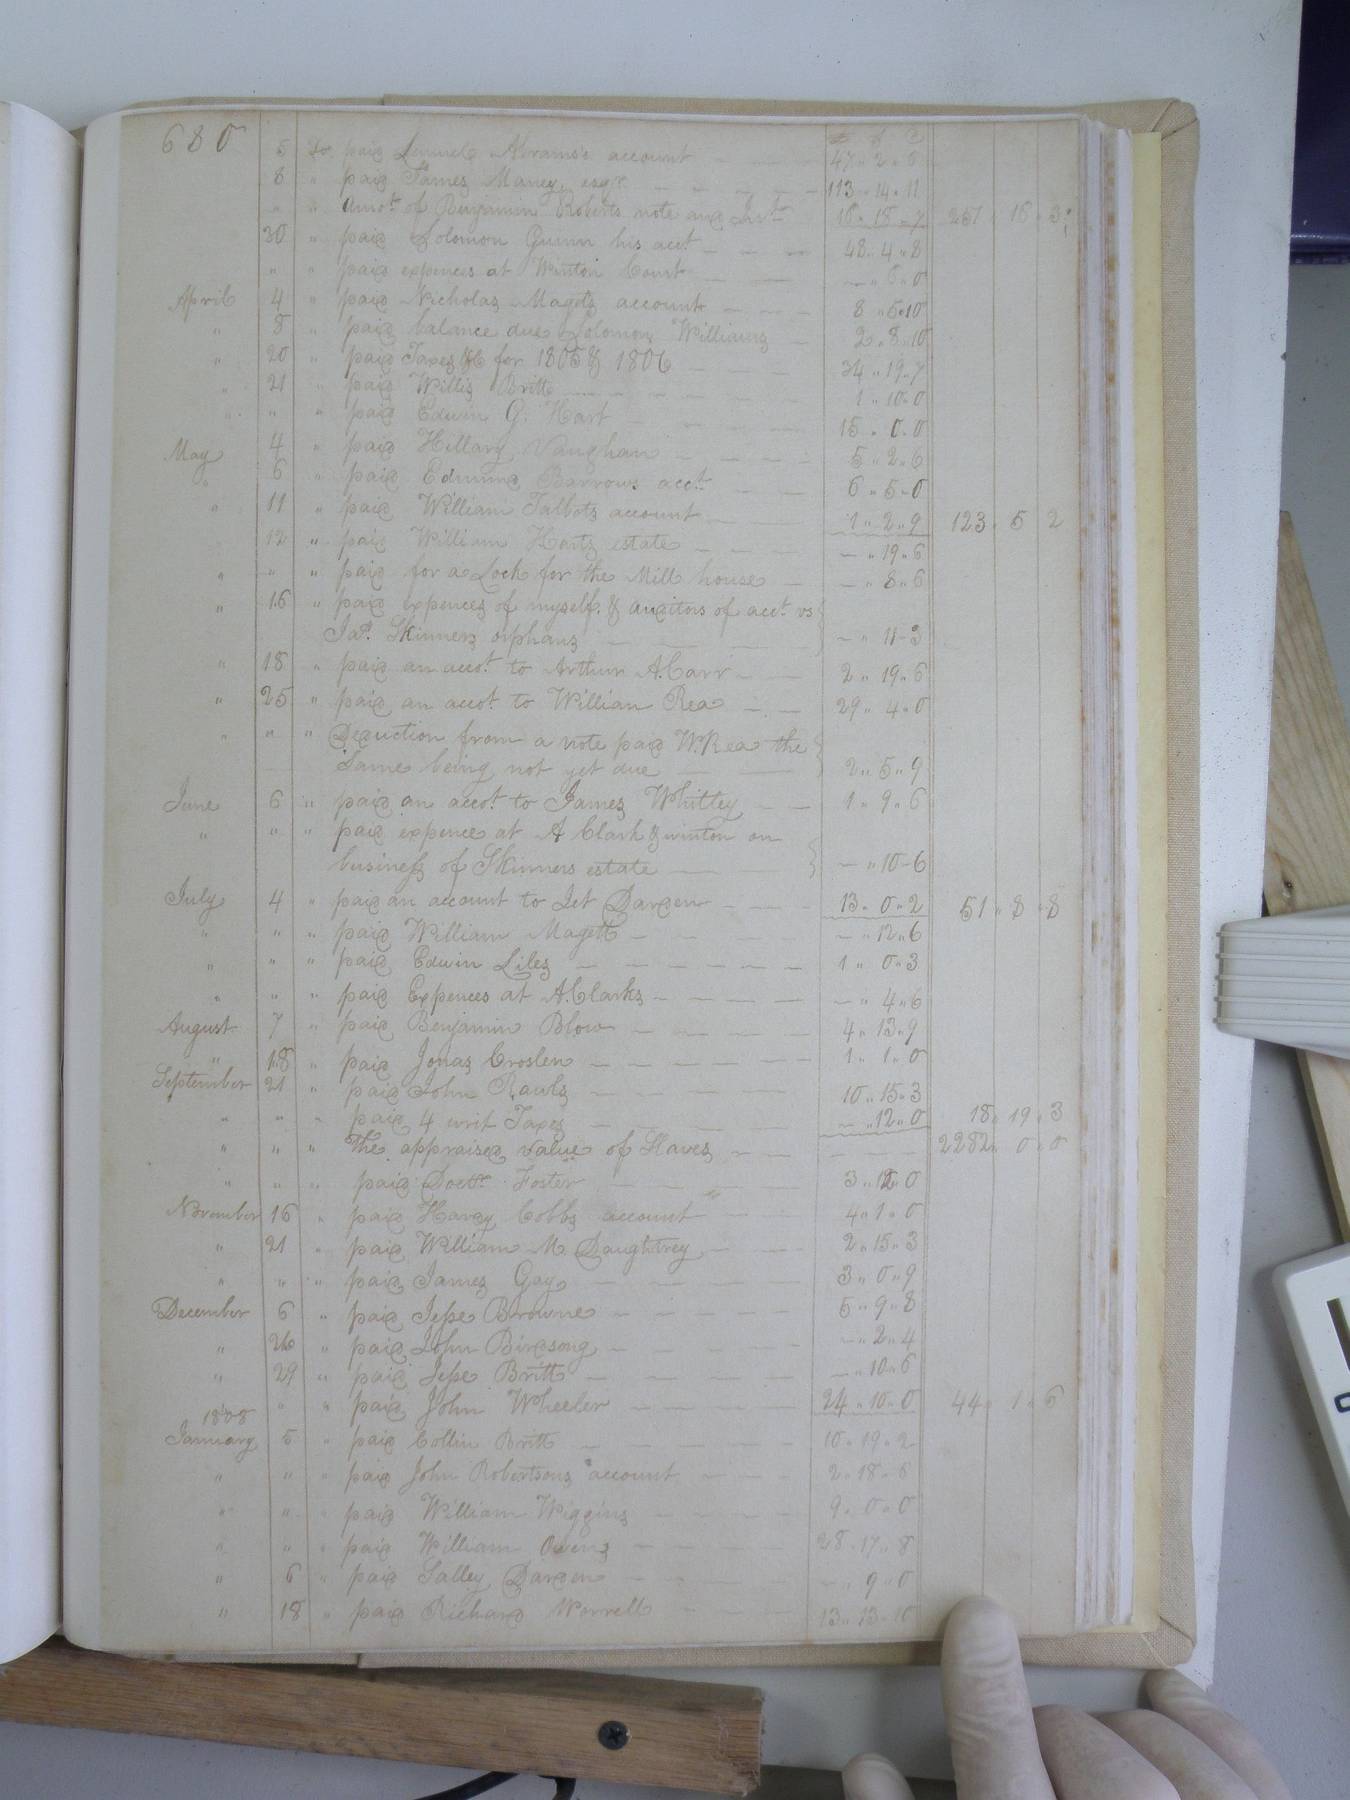 680
£ S D
5 To paid Lemuel Abrams's account 47 " 2 " 6
8 " paid James Maney, esqr. 113 " 14 " 11
" " Amot. of Benjamin Roberts note and Intt. 16 " 18 " 7 257 " 16 " 3
30 " paid Solomon Gumn his acct 48 " 4 " 8
" " paid expences at Winton Court — " 6 " 0
April 4 " paid Nicholas Magets account 8 " 5 " 10
" 8 " paid balance due Solomon Williams 2 " 8 " 10
" 20 " paid Taxes &c for 1805 & 1806 34 " 19 " 7
" 21 " paid Willis Britt 1 " 10 " 0
" " " paid Edwin G. Hart 15 " 0 " 0
May 4 " paid Hillary Vaughan 5 " 2 " 6
" 6 " paid Edmund Barrows acct. 6 " 5 " 0
" 11 " paid William Talbots account 1 " 2 " 9 123 " 5 " 2
12 " paid William Harts estate — " 19 " 6
" " " paid for a Lock for the Mill house — " 8 " 6
" 16 " paid expences of myself & auditors of acct. vs
Jas. Skinners orphans — " 11 " 3
" 18 " paid an accot. to Arthur A. Carr 2 " 19 " 6
" 25 " paid an accot. to William Rea 29 " 4 " 0
" " " Deduction from a note paid W. Rea the
Same being not yet due 2 " 5 " 9
June 6 " paid an accot. to James Whitley 1 " 9 " 6
" " " paid expence at A Clark & winton on
business of Skinners estate — " 10 " 6
July 4 " paid an account to Jet Darden 13 " 0 " 2 51 " 8 " 8
" " " paid William Magett — " 12 " 6
" " " paid Edwin Liles 1 " 0 " 3
" " " paid Expences at A. Clarks — " 4 " 6
August 7 " paid Benjamin Blow 4 " 13 " 9
" 18 " paid Jonas Croslen 1 " 1 " 0
September 21 " paid John Rawls 10 " 15 " 3
" " paid 4 writ Taxes — " 12 " 0 18 " 19 " 3
" " " The appraised value of Slaves 2282 " 0 " 0
" " " paid Doctr. Foster 3 " 0
November 16 " paid Hardy Cobbs account 4 " 1 " 0
" 21 " paid William M. Daughtrey 2 " 15 " 3
" " " paid James Gay 3 " 0 " 9
December 6 " paid Jesse Browne 5 " 9 " 8
" 26 " paid John Birdsong — " 2 " 4
" 29 " paid Jesse Britt — " 10 " 6
" " paid John Wheeler 24 " 10 " 0 44 " 1 " 6
1808
January 5 " paid Collin Britt 10 " 19 " 2
" " " paid John Robertsons account 2 " 18 " 6
" " " paid William Wiggins 9 " 0 " 0
" " " paid William Owens 28 " 17 " 8
" 6 " paid Salley Darden — " 9 " 0
" 18 " paid Richard Worrell 13 " 13 " 10